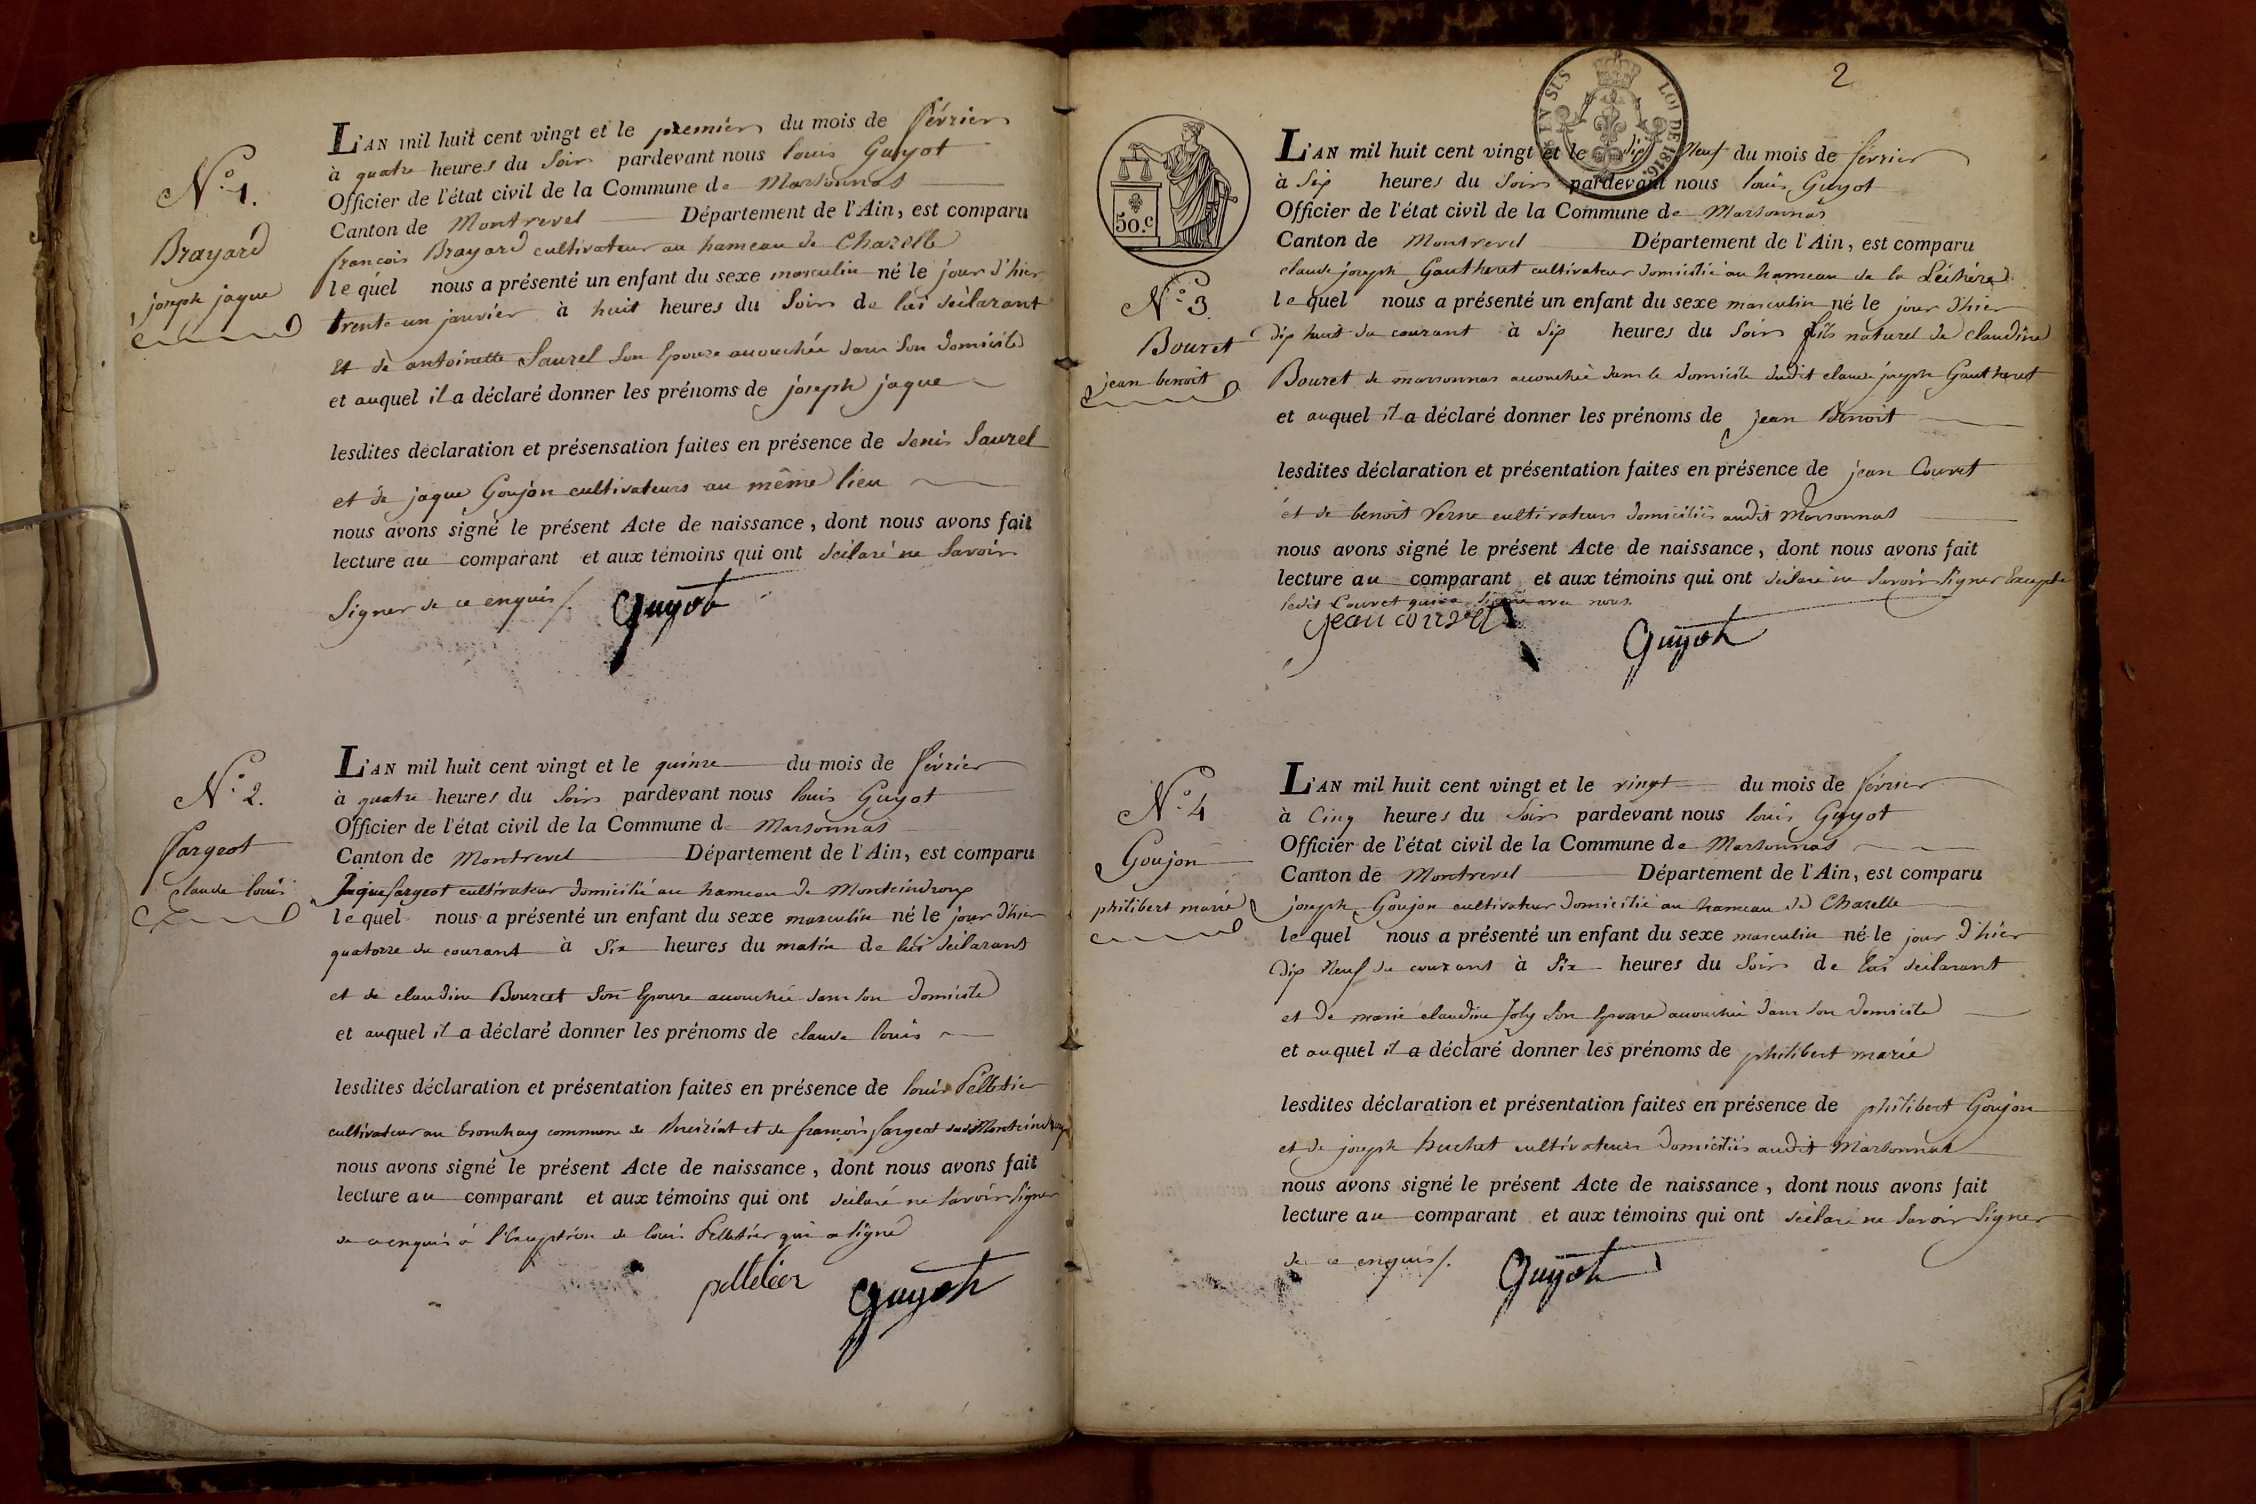 N.o 1.
Brayard
joseph jaque
L'AN mil huit cent vingt et le premier du mois de février
à quatre heures du soir pardevant nous louis Guyot
Officier de l'état civil de la Commune de Marsonnas
Canton de Montrevel Département de l'Ain, est comparu
françois Brayard cultivateur au hameau de Chazelle
lequel nous a présenté un enfant du sexe masculin né le jour d'hier
trente un janvier à huit heures du soir de lui déclarant
et de antoinette Saurel son épouse accouchée dans son domicile
et auquel il a déclaré donner les prénoms de joseph jaque
lesdites déclaration et présensation faites en présence de denis Saurel
et de jaque Goujon cultivateurs au même lieu
nous avons signé le présent Acte de naissance, dont nous avons fait
lecture au comparant et aux témoins qui ont déclaré ne savoir
signer de ce enquis /.
Guyot
N.o 2.
fargeot
claude louis
L'AN mil huit cent vingt et le quinze du mois de février
à quatre heures du soir pardevant nous louis Guyot
Officier de l'état civil de la Commune d Marsonnas
Canton de Montrevel Département de l'Ain, est comparu
Jaque fargeot cultivateur domicilié au hameau de
lequel nous a présenté un enfant du sexe masculin né le jour d'hier
quatorze du courant à six heures du matin de lui déclarant
et de claudine Bourcet son épouse accouchée dans son domicile
et auquel il a déclaré donner les prénoms de claude louis
lesdites déclaration et présentation faites en présence de louis Pelletier
cultivateur au commune de et de françois fargeot
nous avons signé le présent Acte de naissance, dont nous avons fait
lecture au comparant et aux témoins qui ont déclaré ne savoir signer
de ce enquis à l'exception de louis Pelletier qui a signé
pelletier
Guyot
2
EN SUS
LOI DE 1816
50.c
N.o 3
Bouret
jean benoit
L'AN mil huit cent vingt et le dix Neuf du mois de février
à six heures du soir pardevant nous louis Guyot
Officier de l'état civil de la Commune de Marsonnas
Canton de Montrevel Département de l'Ain, est comparu
claude joseph Gautheret cultivateur domicilié au hameau de la Léchère
lequel nous a présenté un enfant du sexe masculin né le jour d'hier
dix huit du courant à six heures du soir fils naturel de claudine
Bouret de marsonnas accouchée dans le domicile dudit claude joseph Gautheret
et auquel il a déclaré donner les prénoms de jean Benoit
lesdites déclaration et présentation faites en présence de jean Couvet
et de benoit Verne cultivateurs domiciliés audit Marsonnas
nous avons signé le présent Acte de naissance, dont nous avons fait
lecture au comparant et aux témoins qui ont déclaré ne savoir signer Excepté
ledit Couvet qui a signé avec nous.
jean couvet
Guyot
N.o 4
Goujon
philibert marie
L'AN mil huit cent vingt et le vingt du mois de février
à Cinq heures du soir pardevant nous louis Guyot
Officier de l'état civil de la Commune de Marsonnas
Canton de Montrevel Département de l'Ain, est comparu
joseph Goujon cultivateur domicilié au hameau de Chazelle
lequel nous a présenté un enfant du sexe masculin né le jour d'hier
dix Neuf du courant à six heures du soir de lui déclarant
et de marie claudine Joly son épouse accouchée dans son domicile
et auquel il a déclaré donner les prénoms de philibert marie
lesdites déclaration et présentation faites en présence de philibert Goujon
et de joseph buchet cultivateurs domiciliés audit Marsonnas
nous avons signé le présent Acte de naissance, dont nous avons fait
lecture au comparant et aux témoins qui ont déclaré ne savoir signer
de ce enquis /.
Guyot